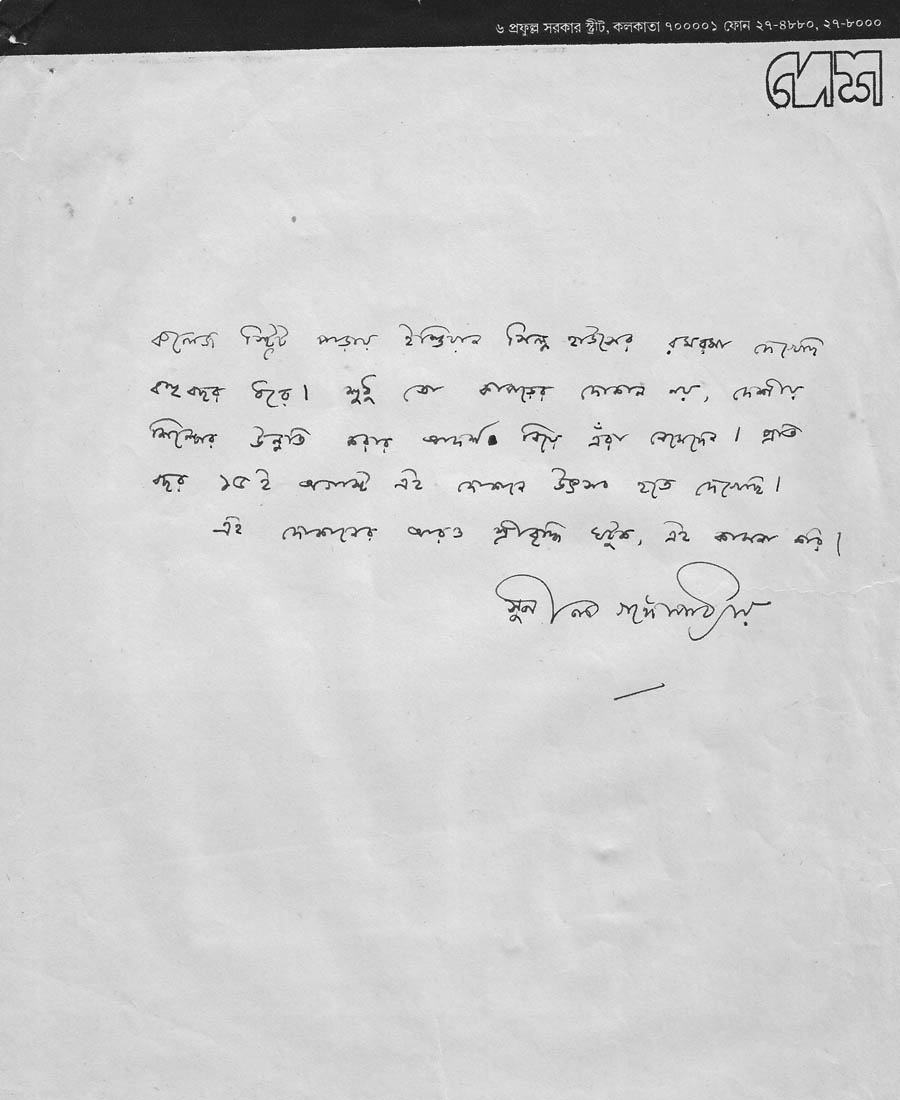 ৬ প্রফুল্ল সরকার স্ট্রীট, কলকাতা ৭০০০০১ ফোন ২৭-৪৮৮০, ২৭-৮০০০
দেশ
কলেজ স্ট্রিট পাড়ায় ইন্ডিয়ান সিল্ক হাউসের রমরমা দেখেছি
বহু বছর ধরে। শুধু তো কাপড়ের দোকান নয়, দেশীয়
শিল্পের উন্নতি করার আদর্শ নিয়ে এঁরা নেমেছেন। প্রতি
বছর ১৫ই আগস্ট এই দোকানে উৎসব হতে দেখেছি।
এই দোকানের আরও শ্রীবৃদ্ধি ঘটুক, এই কামনা করি।
সুনীল গঙ্গোপাধ্যায়